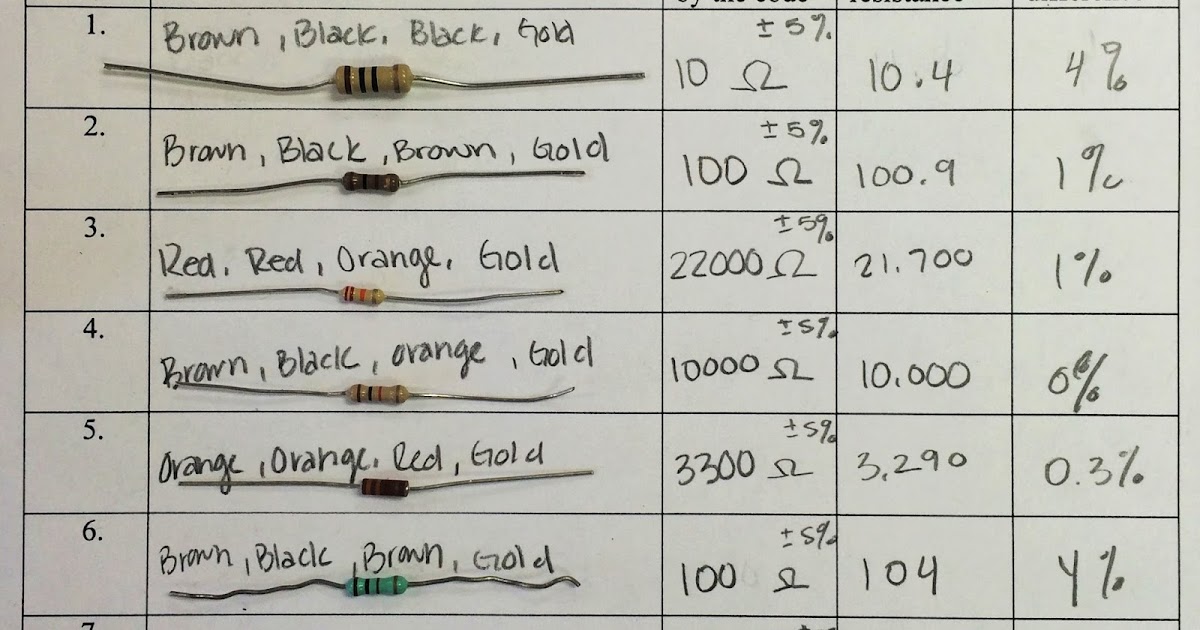 1.
Brown, Black, Black, Gold
± 5%
10 Ω
10.4
4%
2.
Brown, Black, Brown, Gold
± 5%
100 Ω
100.9
1%
3.
Red, Red, Orange, Gold
± 5%
22000 Ω
21.700
1%
4.
Brown, Black, orange, Gold
± 5%
10000 Ω
10.000
0%
5.
Orange, Orange, Red, Gold
± 5%
3300 Ω
3,290
0.3%
6.
Brown, Black, Brown, Gold
± 5%
100 Ω
104
4%